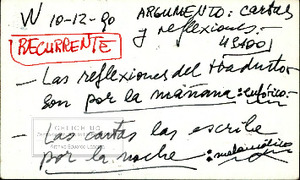 W 10-12-90 ARGUMENTO: cartas
y reflexiones.
RECURRENTE
- Las reflexiones del traductor
son por la mañana: eufórico.-
- Las cartas las escribe
por la noche: melancólico